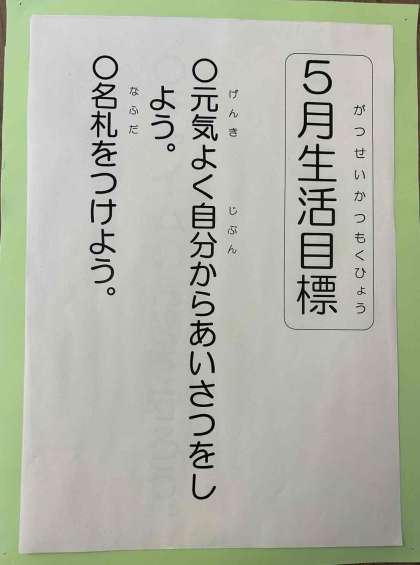 5月生活目標
がつせいかつもくひょう
○元気よく自分からあいさつをし
げんき じぶん
よう。
○名札をつけよう。
なふだ